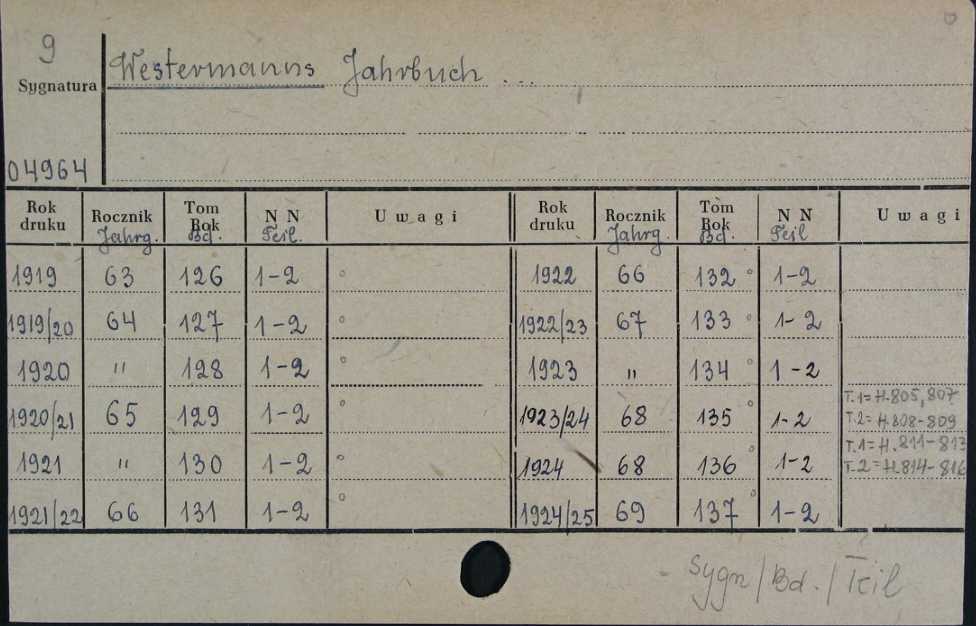 9
Sygnatura
Westermanns Jahrbuch ...
04964
Rok druku Rocznik Jahrg. Tom Rok Bd. N N Teil. Uwagi Rok druku Rocznik Jahrg. Tom Rok Bd. N N Teil Uwagi
1919 63 126 1-2 1922 66 132 1-2
1919/20 64 127 1-2 1922/23 67 133 1-2
1920 " 128 1-2 1923 " 134 1-2
1920/21 65 129 1-2 1923/24 68 135 1-2 T.1=H.805,807 T.2=H.808-809
1921 " 130 1-2 1924 68 136 1-2 T.1=H.811-813 T.2=H.814-816
1921/22 66 131 1-2 1924/25 69 137 1-2
Sygn/Bd./Teil